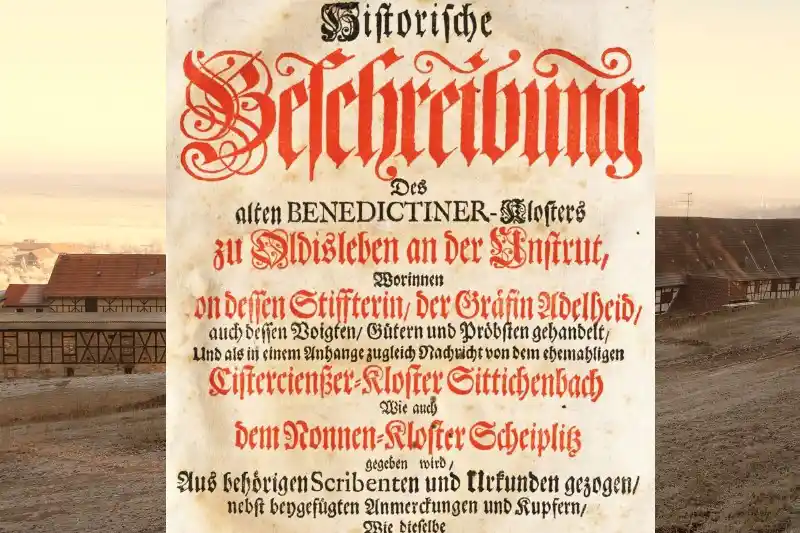 Historische
Beschreibung
Des
alten BENEDICTINER-Klosters
zu Oldisleben an der Unstrut,
Worinnen
on dessen Stiffterin/ der Gräfin Adelheid/
auch dessen Voigten/ Gütern und Pröbsten gehandelt/
Und als in einem Anhange zugleich Nachricht von dem ehemahligen
Cistercienßer-Kloster Sittichenbach
Wie auch
dem Nonnen-Kloster Scheiplitz
gegeben wird/
Aus behörigen Scribenten und Urkunden gezogen/
nebst beygefügten Anmerckungen und Kupfern/
Wie dieselbe